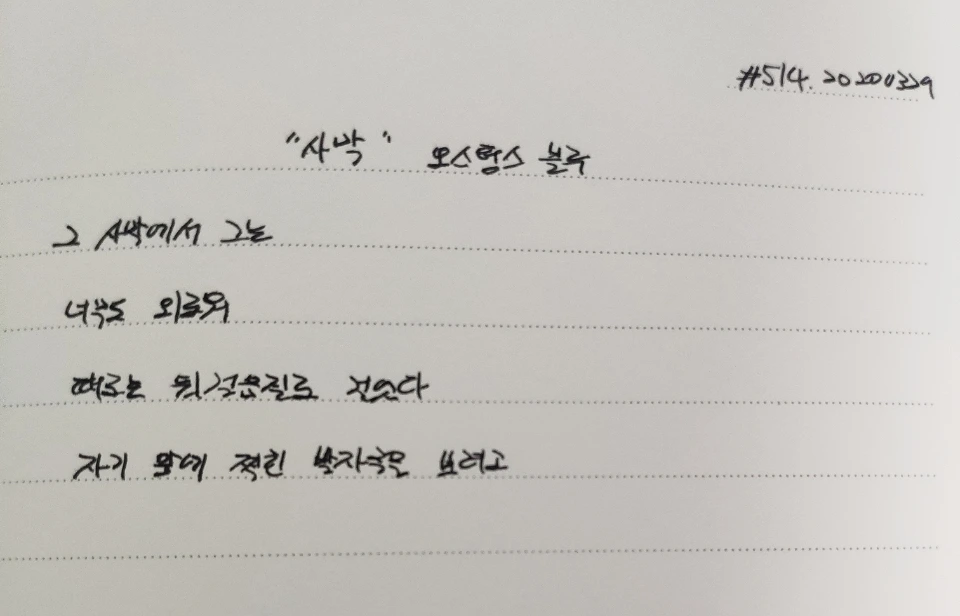 #514. 20200329
"사막" 오스텅스 블루
그 사막에서 그는
너무도 외로워
때로는 뒷걸음질로 걸었다
자기 앞에 찍힌 발자국을 보려고